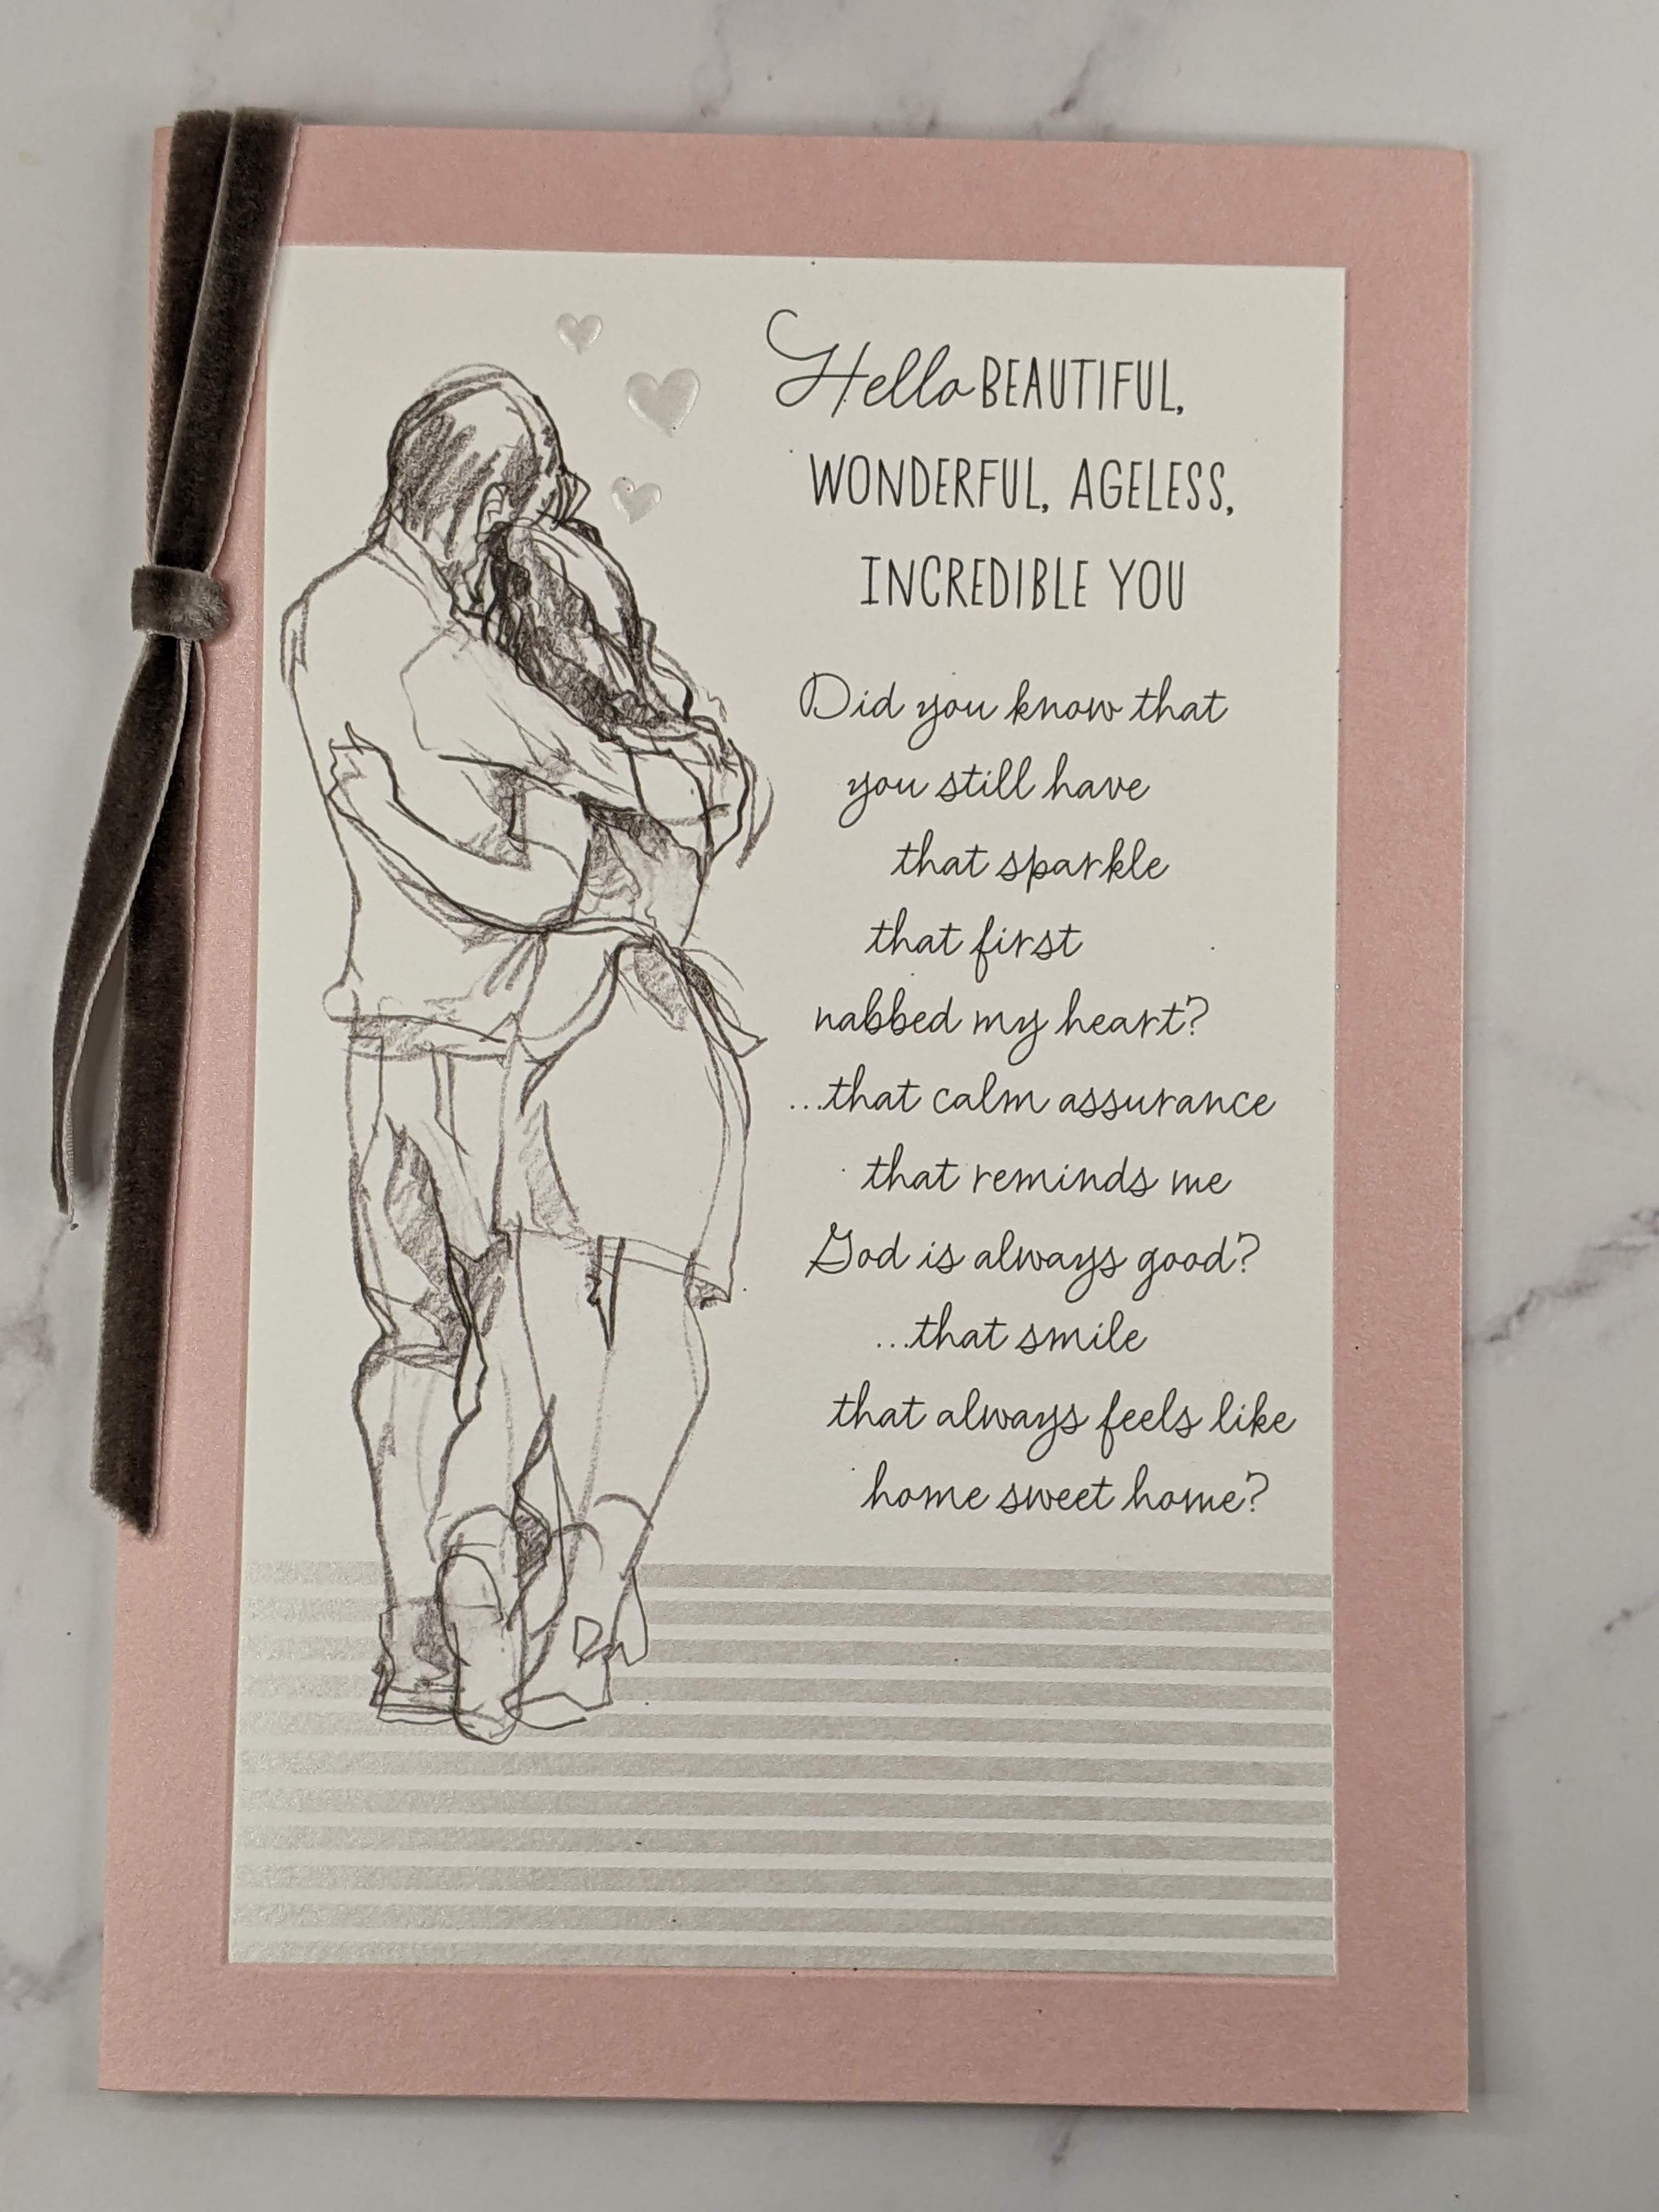 Hello BEAUTIFUL,
WONDERFUL, AGELESS,
INCREDIBLE YOU
Did you know that
you still have
that sparkle
that first
nabbed my heart?
...that calm assurance
that reminds me
God is always good?
...that smile
that always feels like
home sweet home?